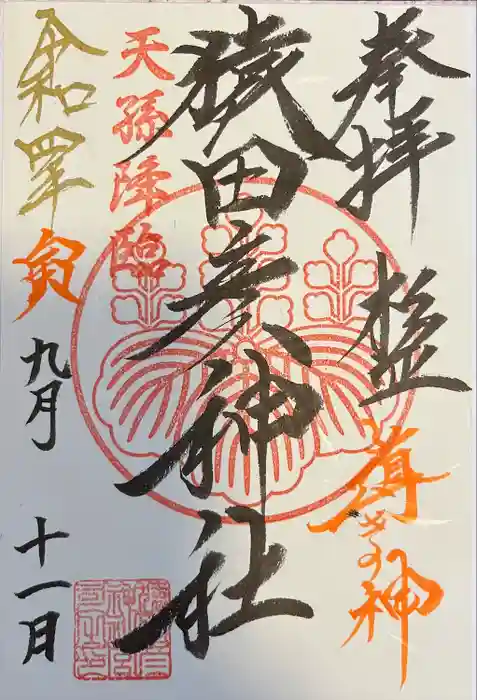 奉拝
導きの神
猿田彦神社
天孫降臨
令和四年
寅
九月
十一日